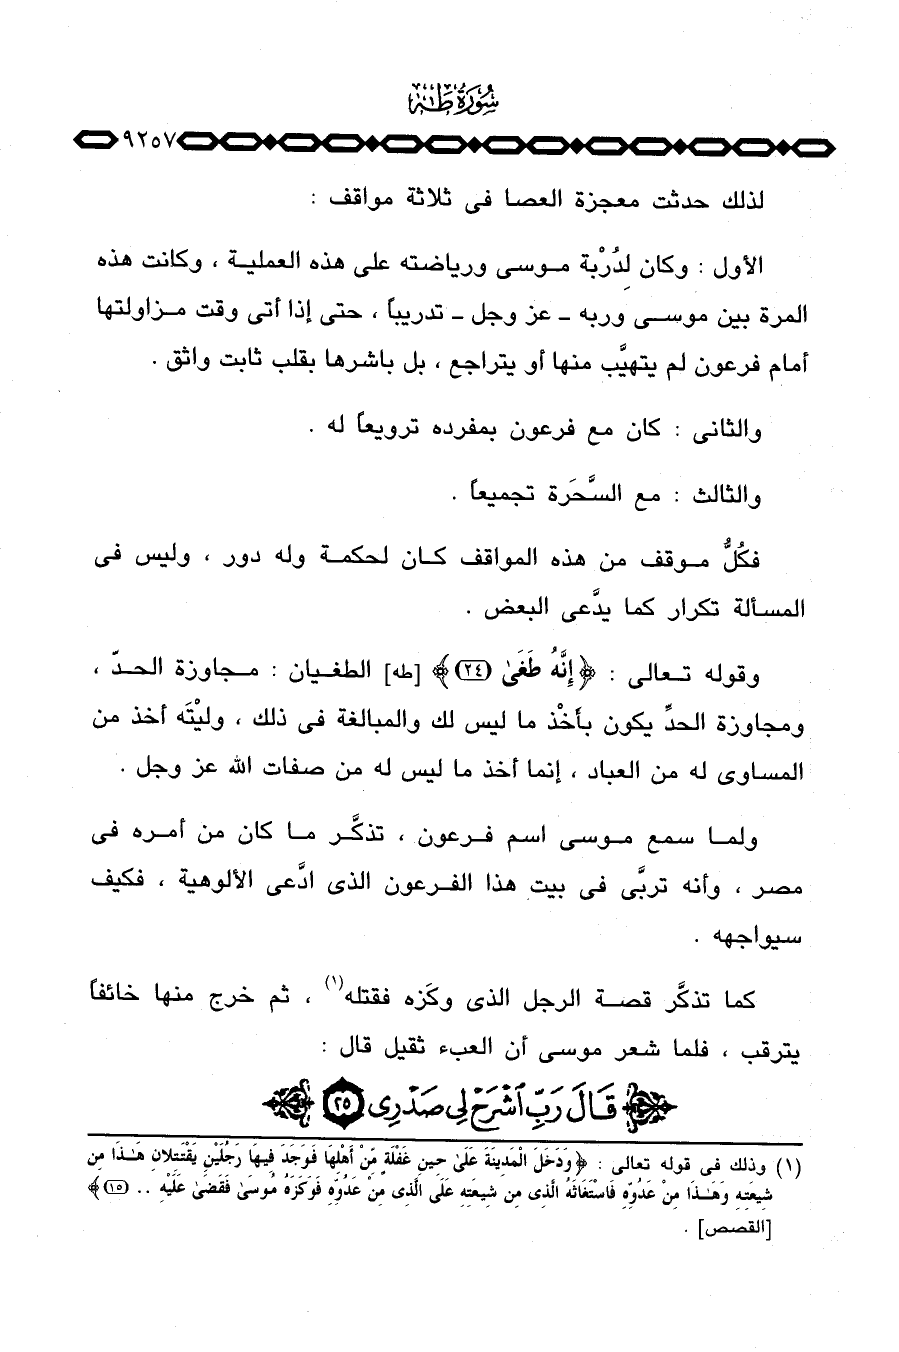 سُورَةُ طٰهٰ
٩٢٥٧
لذلك حدثت معجزة العصا فى ثلاثة مواقف :
الأول : وكان لدُرْبة موسى ورياضته على هذه العملية ، وكانت هذه
المرة بين موسى وربه ـ عز وجل ـ تدريباً ، حتى إذا أتى وقت مزاولتها
أمام فرعون لم يتهيَّب منها أو يتراجع ، بل باشرها بقلب ثابت واثق .
والثانى : كان مع فرعون بمفرده ترويعاً له .
والثالث : مع السَّحَرة تجميعاً .
فكُلُّ موقف من هذه المواقف كان لحكمة وله دور ، وليس فى
المسألة تكرار كما يدَّعى البعض .
وقوله تعالى : ﴿ إِنَّهُ طَغَىٰ (٢٤) ﴾ [طه] الطغيان : مجاوزة الحدّ ،
ومجاوزة الحدِّ يكون بأَخْذ ما ليس لك والمبالغة فى ذلك ، وليْتَه أخذ من
المساوى له من العباد ، إنما أخذ ما ليس له من صفات الله عز وجل .
ولما سمع موسى اسم فرعون ، تذكَّر ما كان من أمره فى
مصر ، وأنه تربَّى فى بيت هذا الفرعون الذى ادَّعى الألوهية ، فكيف
سيواجهه .
كما تذكَّر قصة الرجل الذى وكَزه فقتله(١) ، ثم خرج منها خائفاً
يترقب ، فلما شعر موسى أن العبء ثقيل قال :
قَالَ رَبِّ ٱشْرَحْ لِى صَدْرِى ٢٥
(١) وذلك فى قوله تعالى : ﴿ وَدَخَلَ الْمَدِينَةَ عَلَىٰ حِينِ غَفْلَةٍ مِّنْ أَهْلِهَا فَوَجَدَ فِيهَا رَجُلَيْنِ يَقْتَتِلَانِ هَـٰذَا مِن
شِيعَتِهِ وَهَـٰذَا مِنْ عَدُوِّهِ فَاسْتَغَاثَهُ الَّذِى مِن شِيعَتِهِ عَلَى الَّذِى مِنْ عَدُوِّهِ فَوَكَزَهُ مُوسَىٰ فَقَضَىٰ عَلَيْهِ .. (١٥) ﴾
[القصص] .